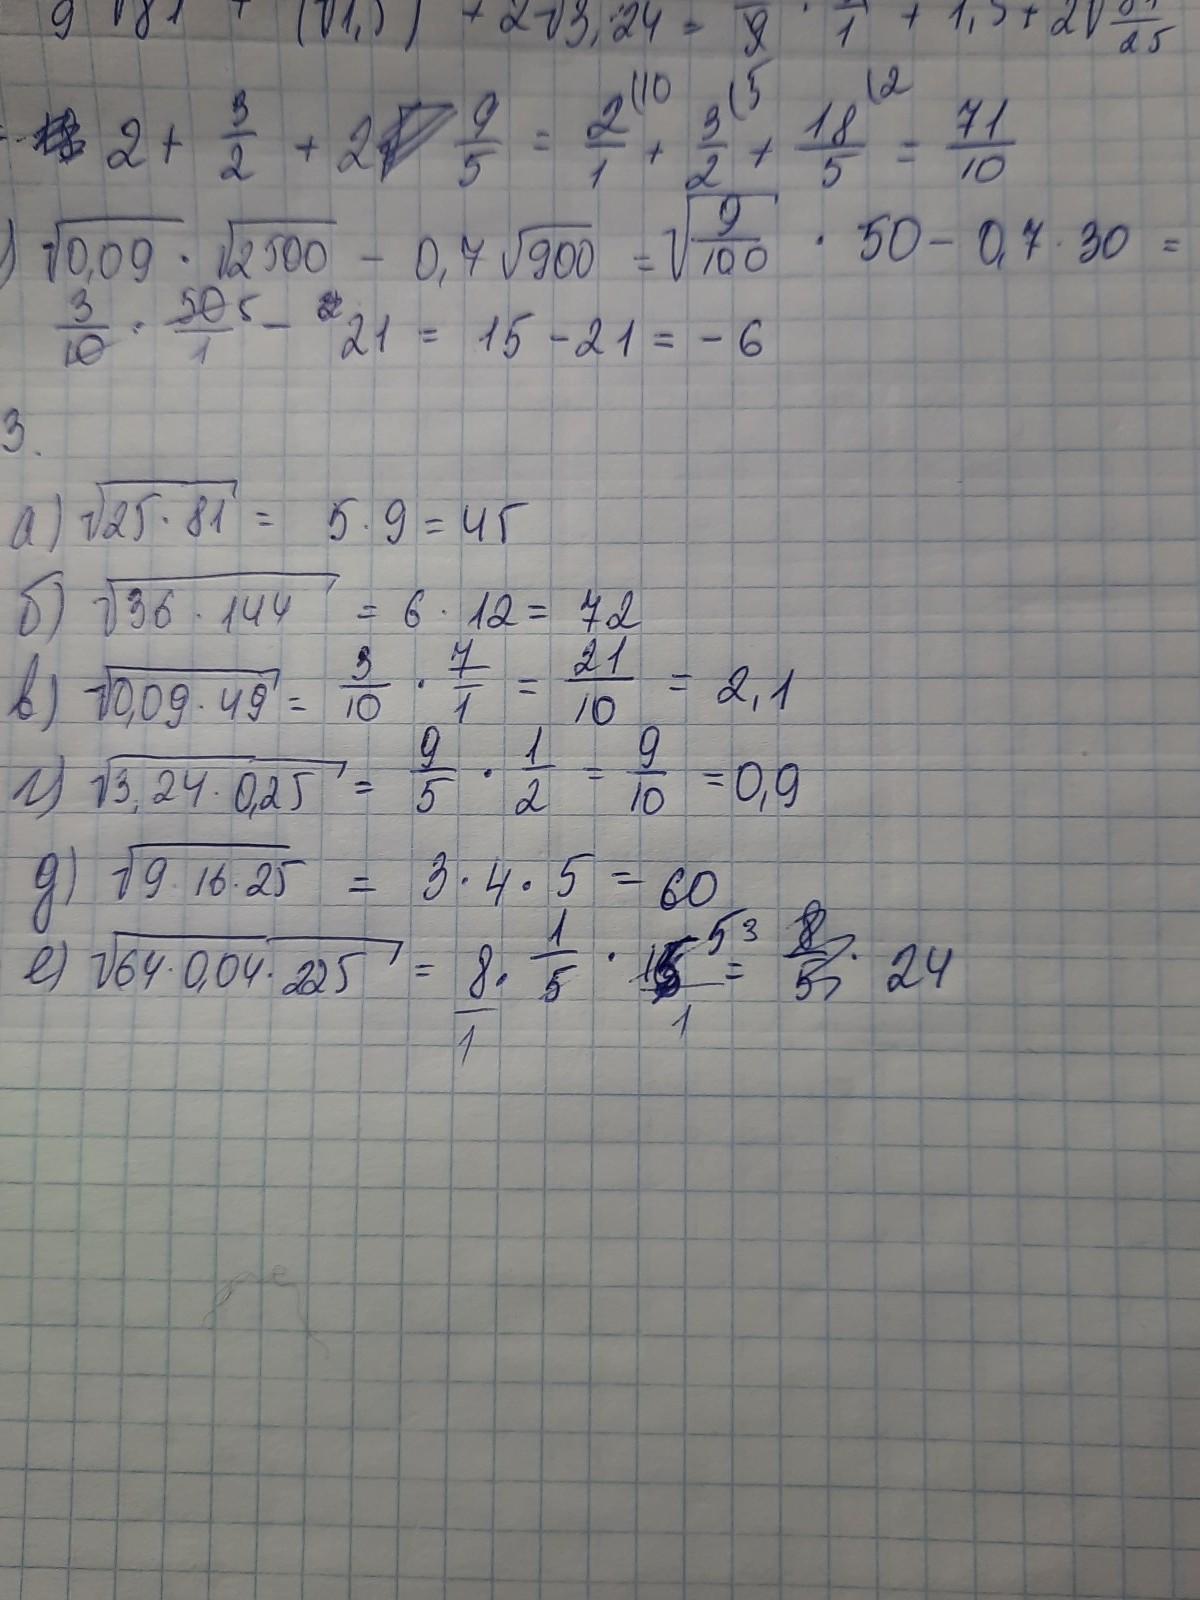 9 √81 + (√1,5) + 2√3,24 = — · — + 1,5 + 2√81/25
= 2 + 3/2 + 2 9/5 = 2/1 (10 + 3/2 (5 + 18/5 (2 = 71/10
) √0,09 · √2500 - 0,7 √900 = √9/100 · 50 - 0,7 · 30 =
3/10 · 50/1 5 - 21 = 15 - 21 = -6
3.
а) √25 · 81 = 5 · 9 = 45
б) √36 · 144 = 6 · 12 = 72
в) √0,09 · 49 = 3/10 · 7/1 = 21/10 = 2,1
г) √3,24 · 0,25 = 9/5 · 1/2 = 9/10 = 0,9
д) √9 · 16 · 25 = 3 · 4 · 5 = 60
е) √64 · 0,04 · 225 = 8/1 · 1/5 · 15/1 3 = 24